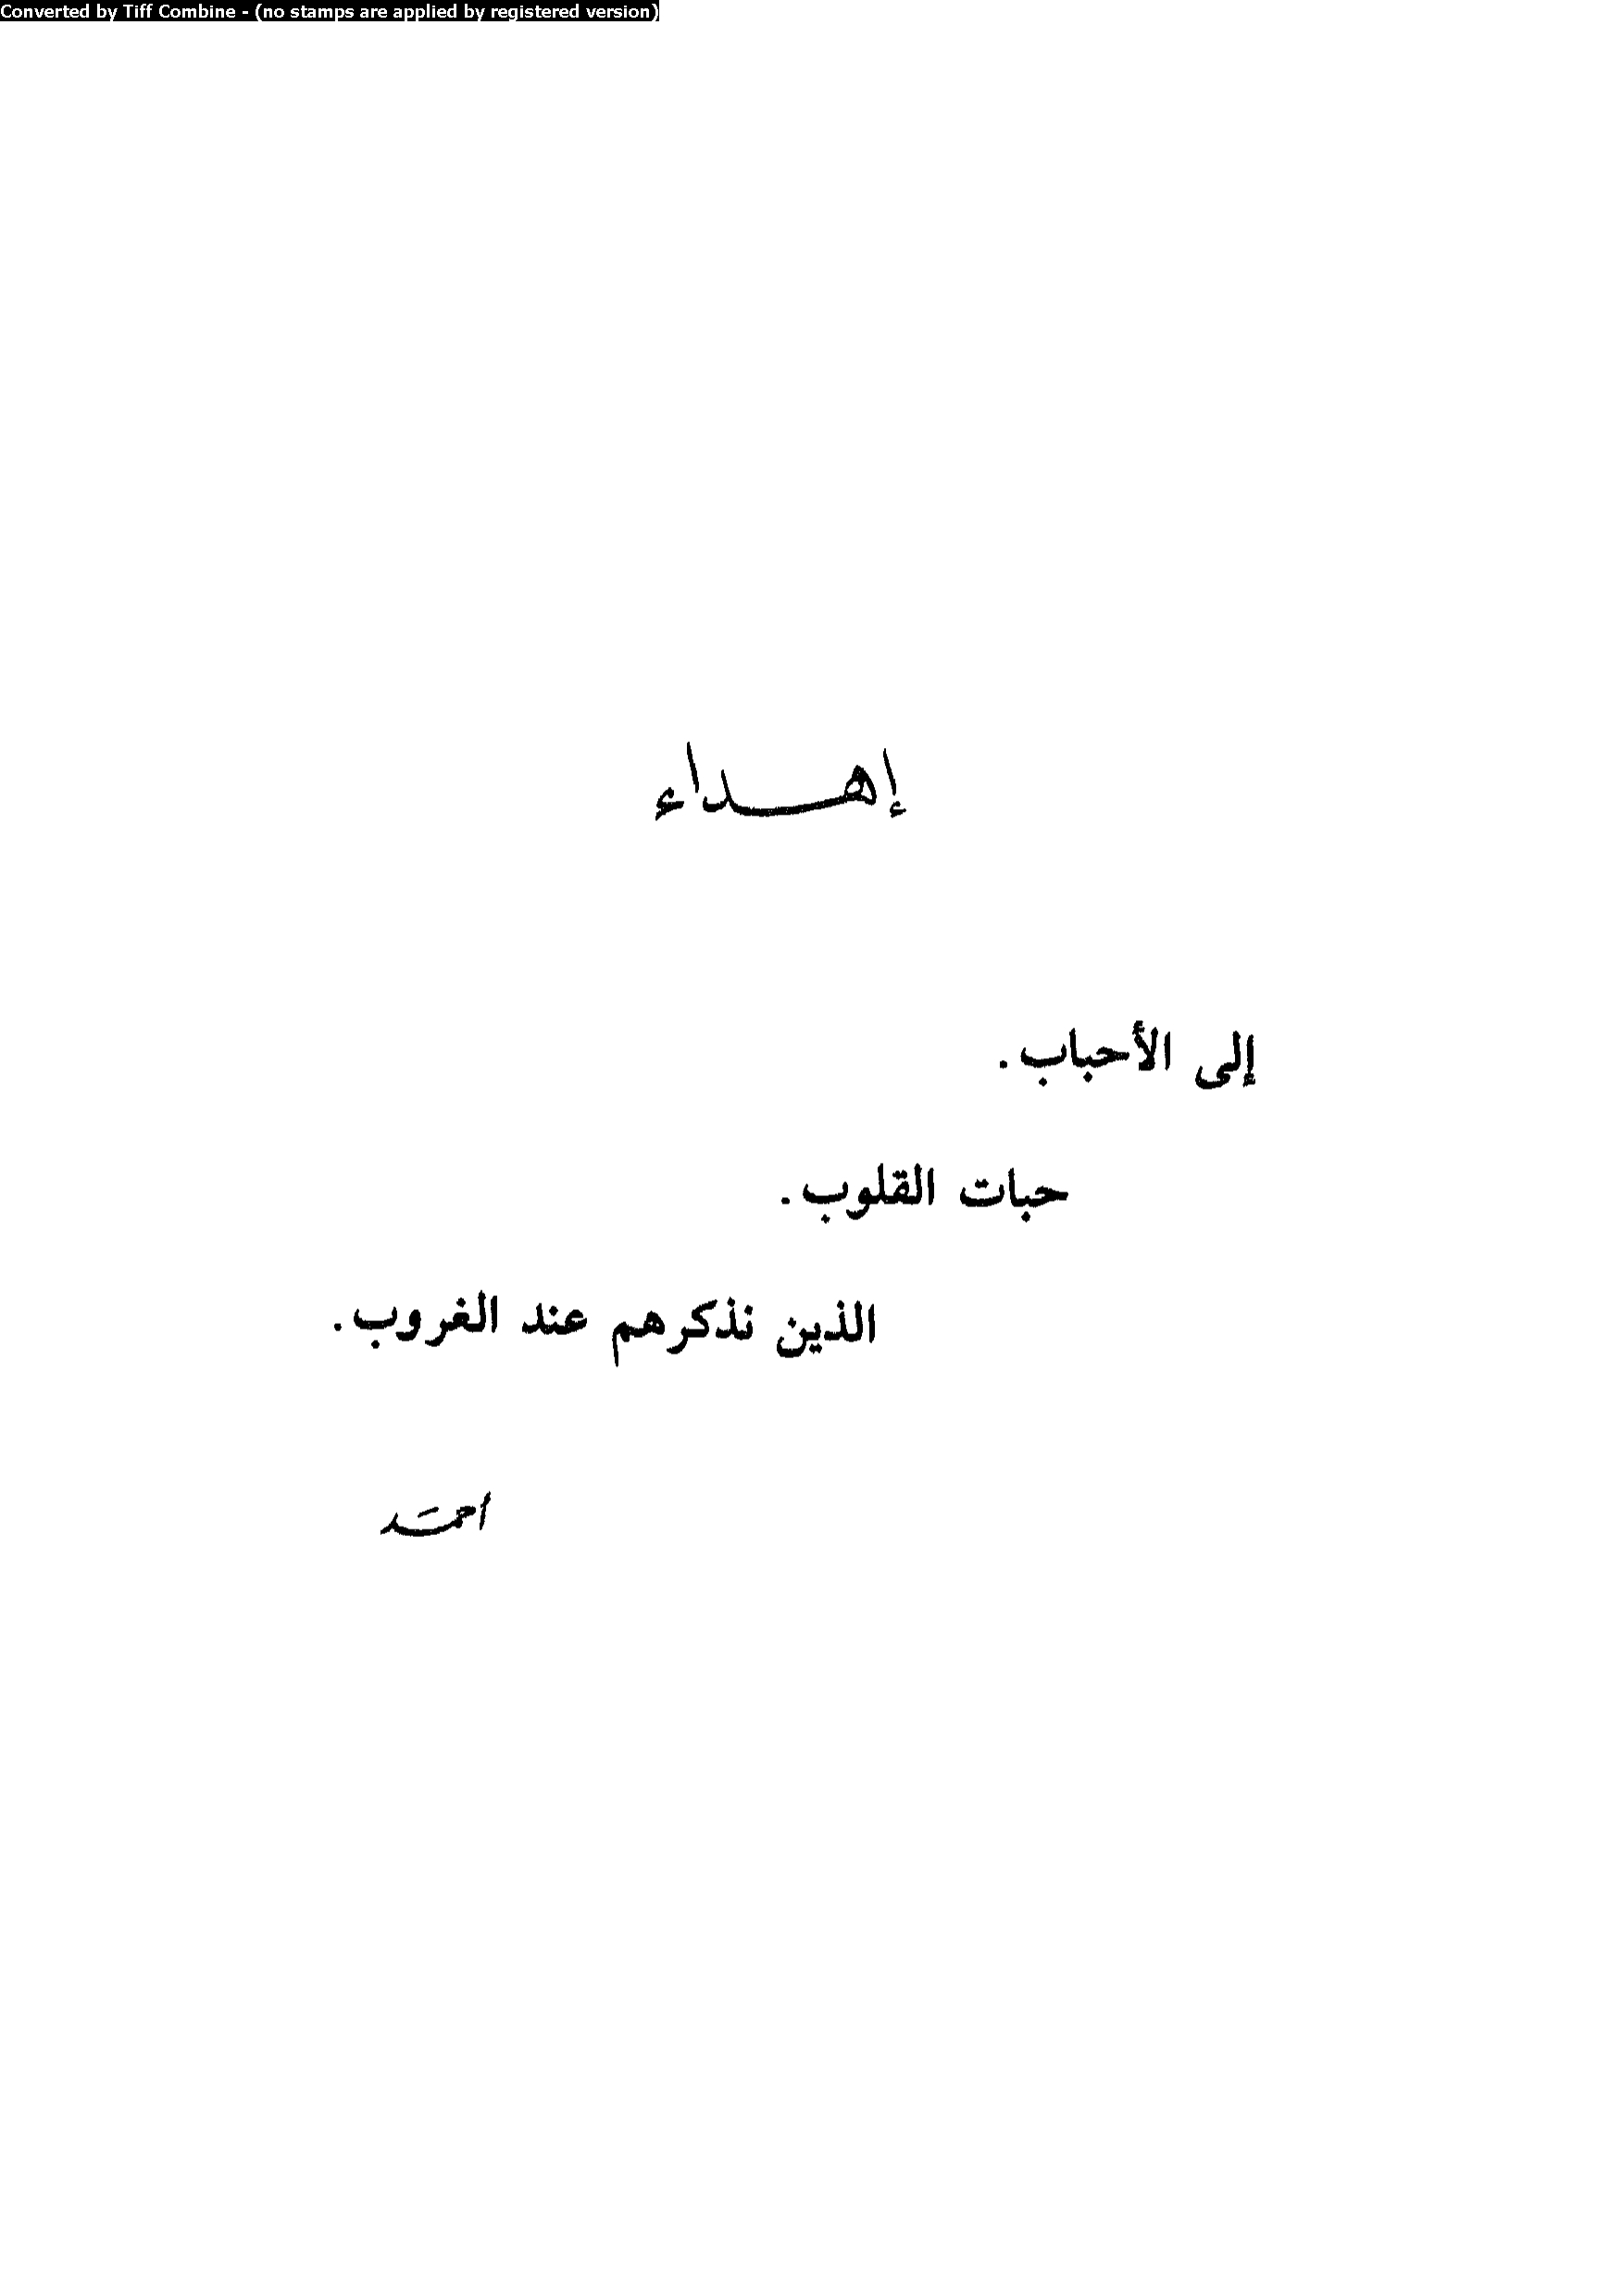 Converted by Tiff Combine - (no stamps are applied by registered version)
إهـــداء
إلى الأحباب .
حبات القلوب .
الذين نذكرهم عند الغروب .
أحمَد